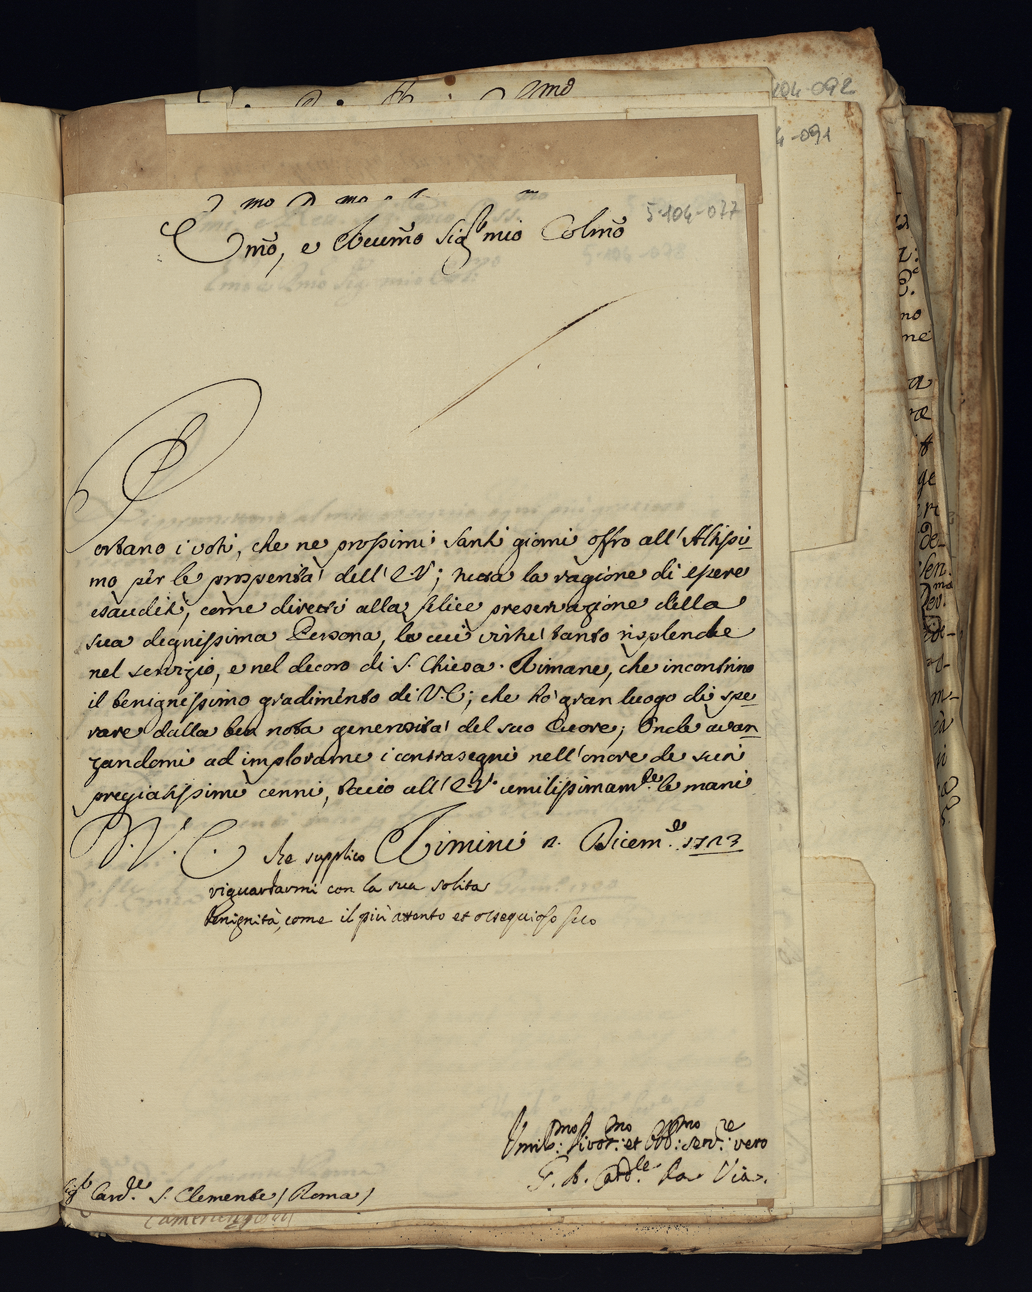 104-092
4-091
5-104-077
Emo, e Reumo Sigr mio Colmo
Portano i voti, che ne prossimi Santi giorni offro all'Altissi-
mo per le prosperità dell'E.V; tutta la ragione di essere
esauditi, come diretti alla felice preservazione della
sua degnissima Persona, le cui virtù tanto risplende
nel servizio, e nel decoro di S. Chiesa. Rimane, che incontrino
il benignissimo gradimento di V.E; che hò gran luogo di spe-
rare dalla ben nota generosità del suo Cuore; Onde avan-
zandomi ad implorarne i contrasegni nell'onore de suoi
pregiatissimi cenni, bacio all'E.V. umilissimamte le mani
D. V. E. che supplico Rimini Dicemre 1723
riguardarmi con la sua solita
benignità, come il più attento et ossequioso suo
Umilmo divotmo et Obbmo servre vero
Cardle Da Via.
Sigr Cardle S. Clemente (Roma)